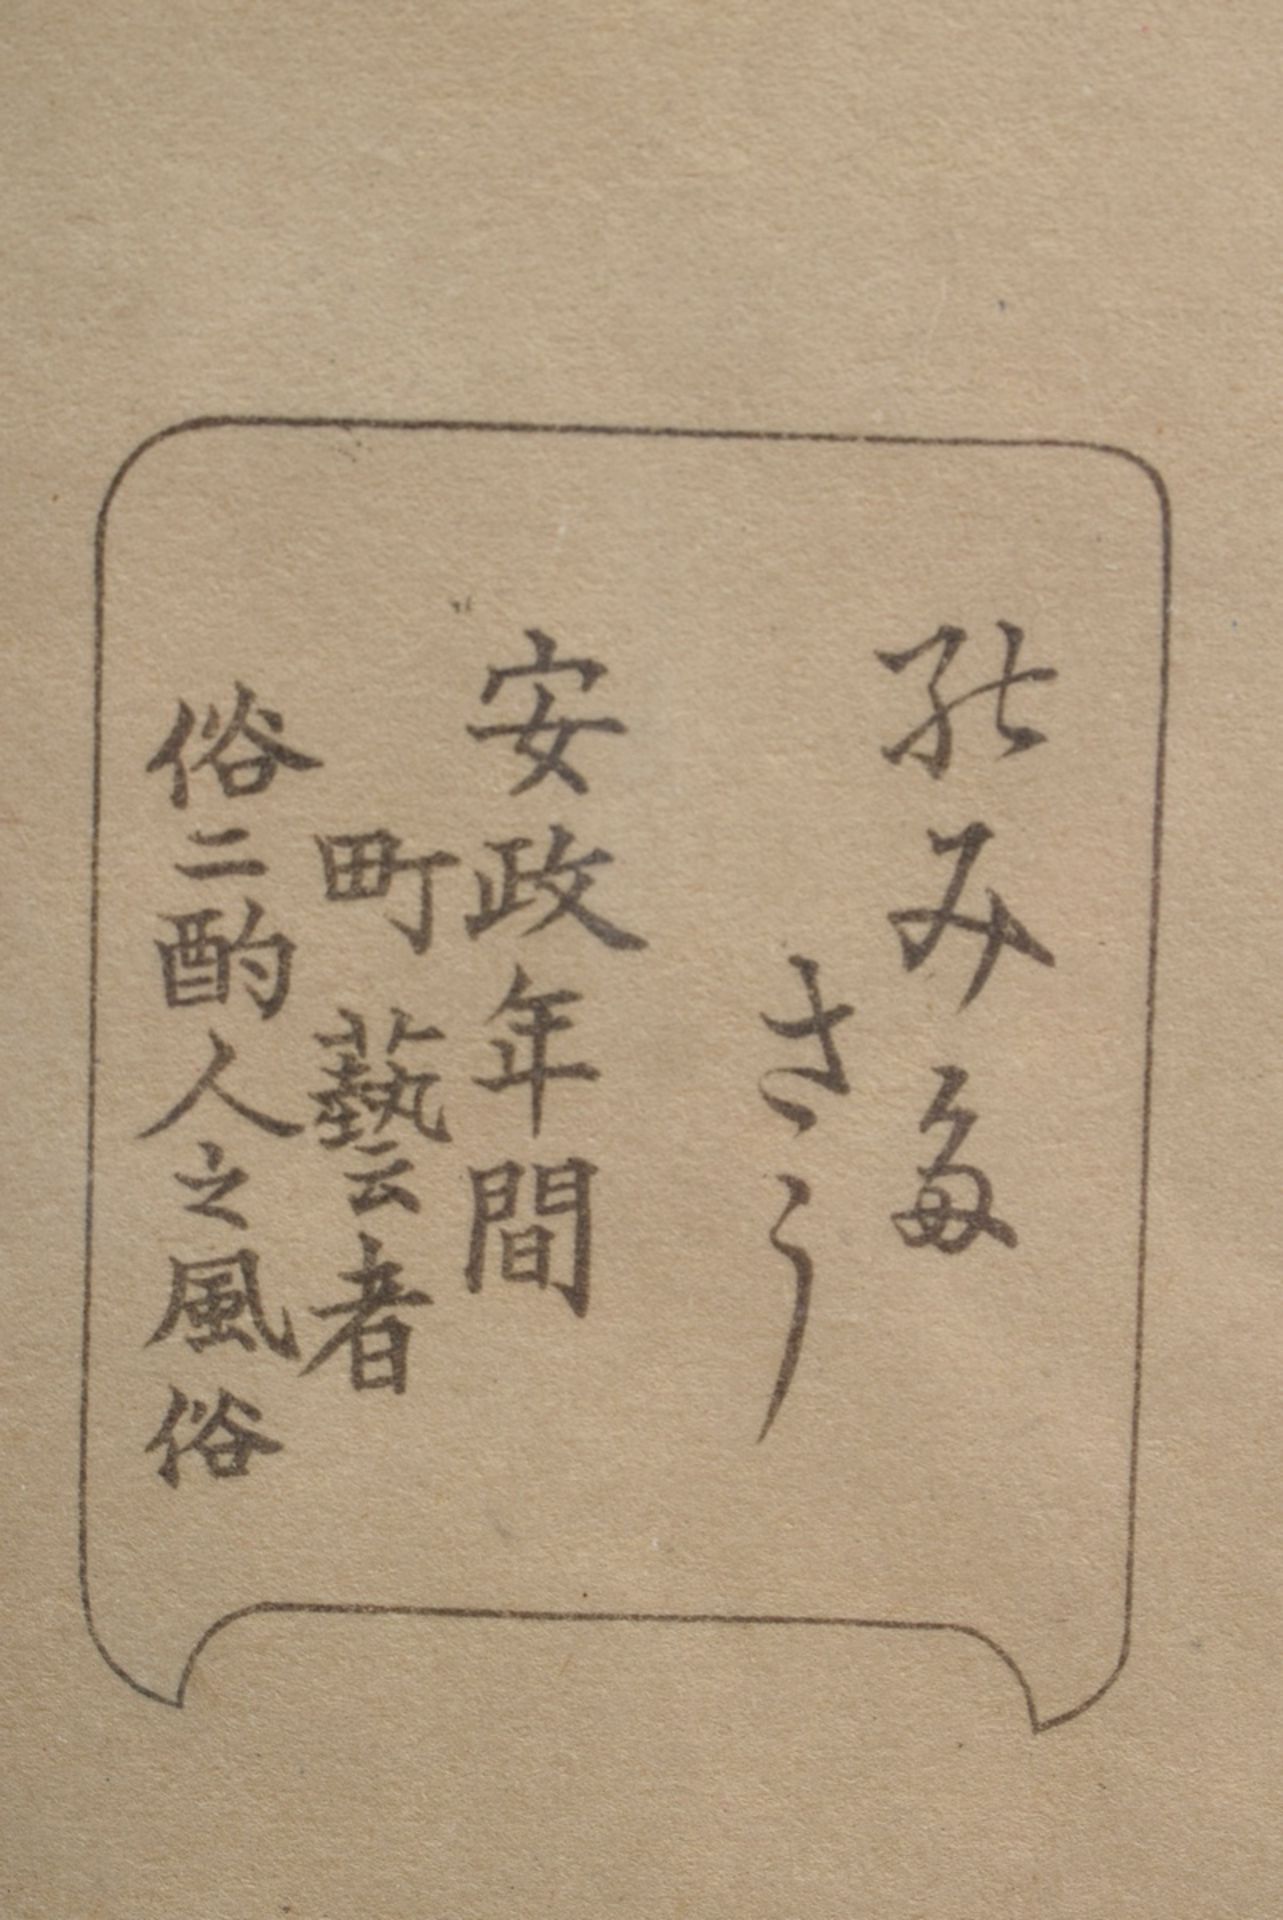 のみた
さう
安政年間
町藝者
俗ニ酌人之風俗